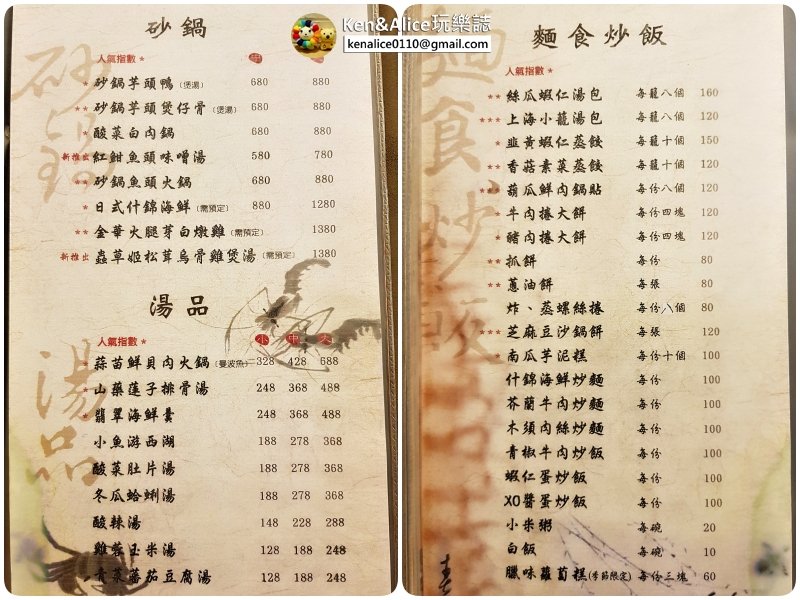 Ken&Alice玩樂誌
kenalice0110@gmail.com
砂鍋
人氣指數* 中
*砂鍋芋頭鴨(煲湯) 680 880
**砂鍋芋頭煲仔骨(煲湯) 680 880
*酸菜白肉鍋 680 880
新推出 紅魽魚頭味噌湯 580 780
**砂鍋魚頭火鍋 680 880
*日式什錦海鮮(需預定) 880 1280
**金華火腿芽白燉雞(需預定) 1380
新推出 蟲草姬松茸烏骨雞煲湯(需預定) 1380
湯品
人氣指數* 小 中 大
*蒜苗鮮貝肉火鍋(曼波魚) 328 428 688
*山藥蓮子排骨湯 248 368 488
*翡翠海鮮羹 248 368 488
小魚游西湖 188 278 368
酸菜肚片湯 188 278 368
冬瓜蛤蜊湯 188 278 368
酸辣湯 148 228 288
雞蓉玉米湯 128 188 248
青菜蕃茄豆腐湯 128 188 248
砂鍋
湯品
麵食炒飯
人氣指數*
**絲瓜蝦仁湯包 每籠八個 160
***上海小籠湯包 每籠八個 120
*韭黃蝦仁蒸餃 每籠十個 150
**香菇素菜蒸餃 每籠十個 120
***葫瓜鮮肉鍋貼 每份八個 120
*牛肉捲大餅 每份四塊 120
*豬肉捲大餅 每份四塊 120
**抓餅 每份 80
**蔥油餅 每張 80
炸、蒸螺絲捲 每份八個 80
***芝麻豆沙鍋餅 每張 120
*南瓜芋泥糕 每份十個 100
什錦海鮮炒麵 每份 100
芥蘭牛肉炒麵 每份 100
木須肉絲炒麵 每份 100
青椒牛肉炒飯 每份 100
蝦仁蛋炒飯 每份 100
XO醬蛋炒飯 每份 100
小米粥 每碗 20
白飯 每碗 10
臘味蘿蔔糕(季節限定) 每份三塊 60
麵食炒飯